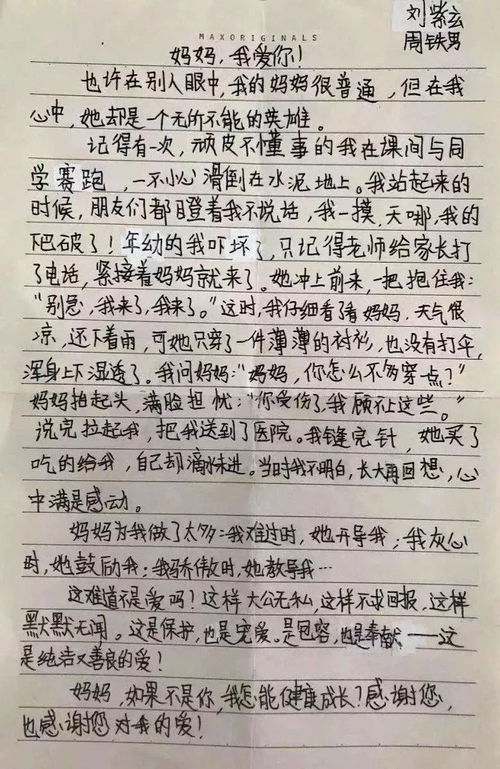 刘紫玄
MAXORIGINALS
周铁男
妈妈，我爱你！
也许在别人眼中，我的妈妈很普通，但在我
心中，她却是一个无所不能的英雄。
记得有一次，顽皮不懂事的我在课间与同
学赛跑，一不小心滑倒在水泥地上。我站起来的
时候，朋友们都瞪着我不说话，我一摸，天哪，我的
下巴破了！年幼的我吓坏了，只记得老师给家长打
了电话，紧接着妈妈就来了。她冲上前来，一把抱住我：
“别急，我来了，我来了。”这时，我仔细看了看妈妈，天气很
凉，还下着雨，可她只穿了一件薄薄的衬衫，也没有打伞，
浑身上下湿透了。我问妈妈：“妈妈，你怎么不多穿点？”
妈妈抬起头，满脸担忧：“你受伤了，我顾不上这些。”
说完拉起我，把我送到了医院。我缝完针，她买了
吃的给我，自己却滴水未进。当时我不明白，长大再回想，心
中满是感动。
妈妈为我做了太多：我难过时，她开导我；我灰心
时，她鼓励我；我骄傲时，她教导我…
这难道不是爱吗！这样大公无私，这样不求回报，这样
默默无闻。这是保护，也是宠爱。是包容，也是奉献——这
是纯洁又善良的爱！
妈妈，如果不是你，我怎能健康成长？感谢您，
也感谢您对我的爱！